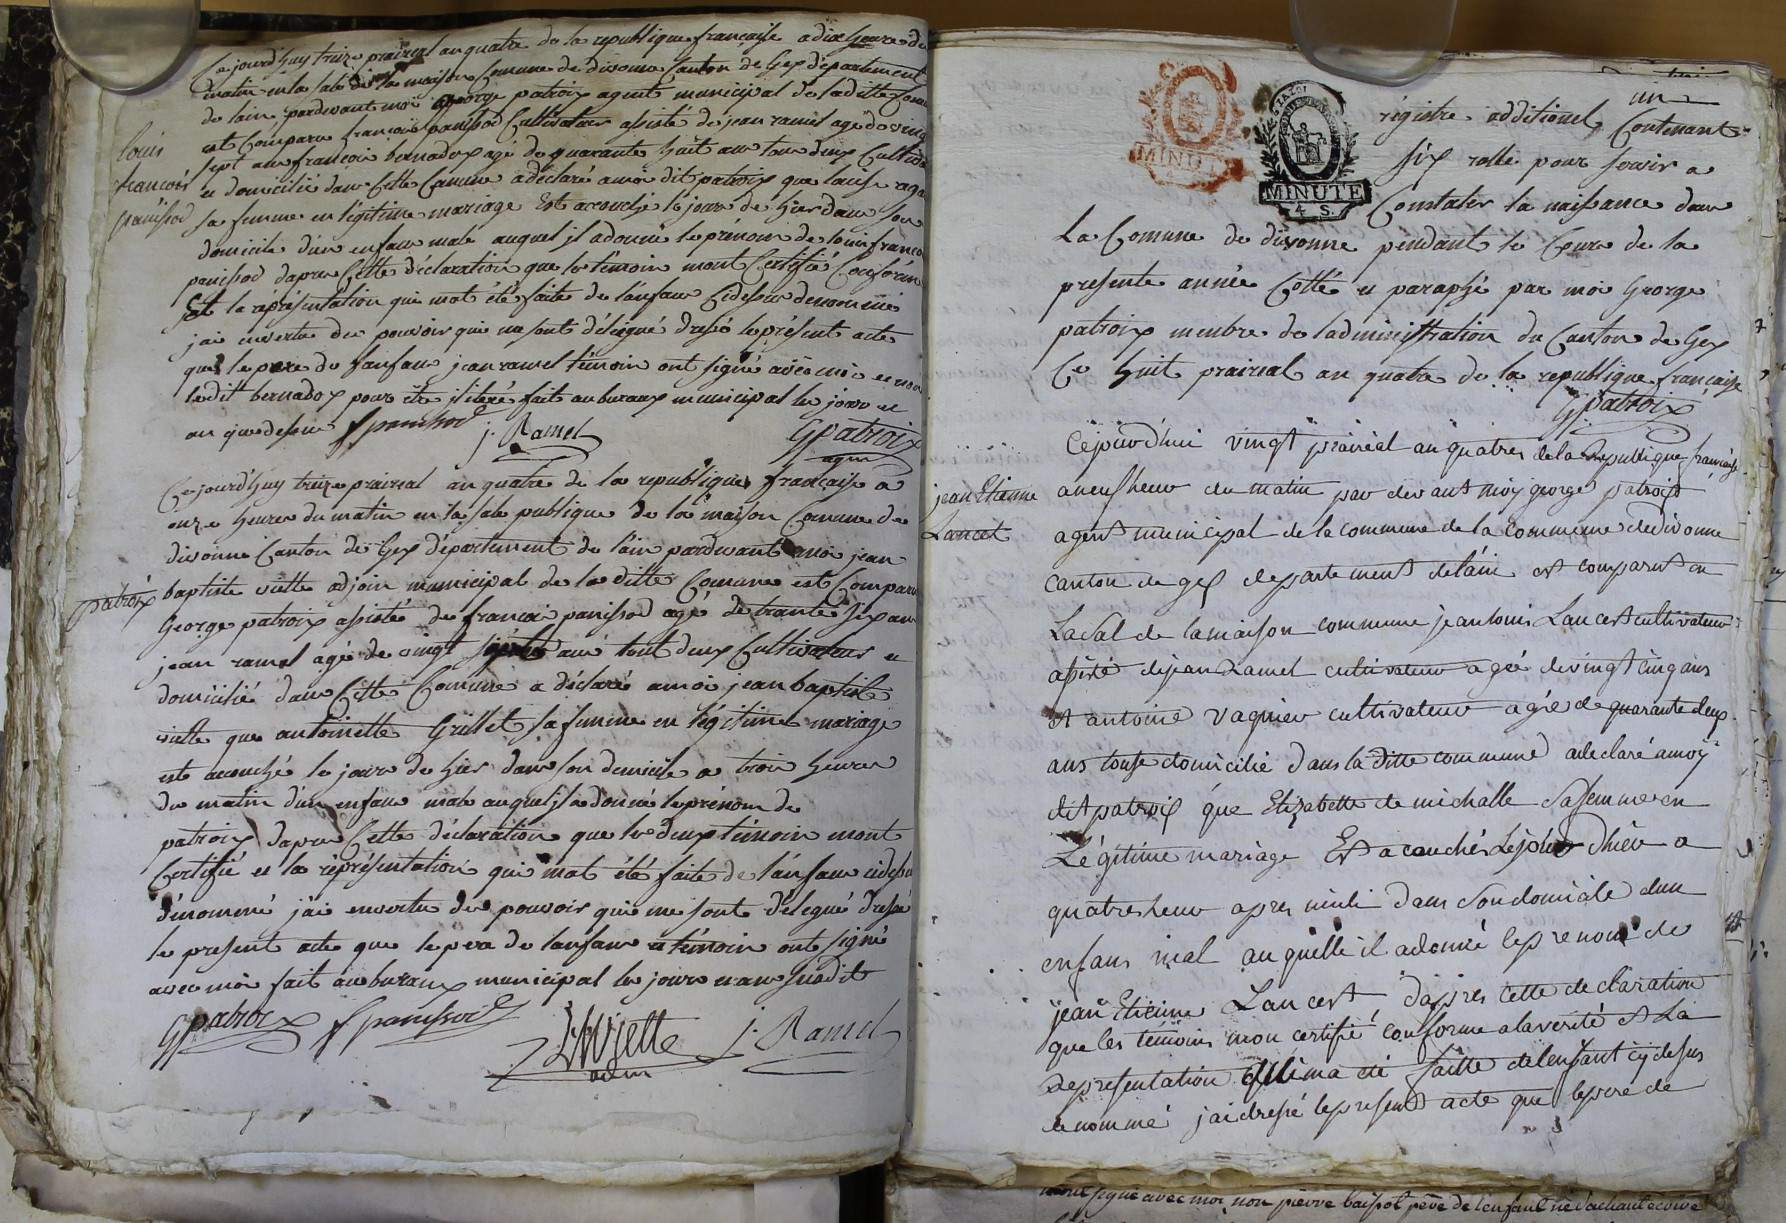 Ce jourd'huy treize prairial an quatre de la republique française a dix heure du
matin en la sale de la maison Comune de divonne Canton de Gex département
de lain pardevant moi George patroix agent municipal de laditte Comu
est Comparu francois panissod Cultivateur asisté de jean ramel agé de vingt
sept ans francois bernadox agé de quarante huit ans tous deux Cultiva
et domicilié dans Cette Comune a déclaré a moi dit patroix que
louis
francois
panissod
sa femme en légitime mariage Est accouché le jour de hier dans son
domicile d'un enfant male auquel il a donné le prénom de louis francois
panissod dapres Cette déclaration que les témoin mont Certifié Conforme
Et la représentation qui mat été faite de lenfant Cidesus denommé
jai envertu des pouvoir qui me sont délégué dressé le présent acte
que le pere de lanfant jean ramel témoin ont signé avec moi et non
ledit bernadox pour être ilitéré fait au bureaux municipal les jour et
an que desus f panissod j. Ramel G Patroix
agen
Ce jourd'huy treize prairial an quatre de la republique française a
onze heures du matin en la sale publique de la maison Comune de
divonne Canton de Gex département de lain pardevant moi jean
baptiste viette adjoin municipal de la ditte Comune est Comparu
patroix
George patroix asisté de francois panissod agé de trante six ans
jean ramel agé de vingt sept ans tout deux Cultivateurs et
domicilié dans Cette Comune a déclaré a moi jean baptiste
viette que antoinette Grillet sa femme en légitime mariage
est accouché le jour de hier dans son domicile a trois heures
du matin d'un enfant male auquel il a donné le prénom de
patroix dapres Cette déclaration que les deux témoin mont
Certifié et la représentation qui mat été faite de lanfant cidesu
dénommé jai envertu des pouvoir qui me sont délegué dressé
le present acte que le pere de lanfant et témoin ont signé
avec moi fait au bureaux municipal les jour et an susdit
G Patroix f panissod
viette j. Ramel
adm
un
régistre additionel Contenant
six rolle pour servir a
MINUTE
MINUTE
4 S.
Constater la naissance dans
La Comune de divonne pendant le Cours de la
presente année Cotté et paraphé par moi George
patroix membre de ladministration du Canton de Gex
Ce huit prairial an quatre de la republique française
G Patroix
Cejourd'hui vingt prairial an quatres de la Republique française
jean Etienne
Lancet
a neuf heur du matin par devant moy george patroix
agent municipal de la commune de la commune de divonne
canton de gex departement de lain est comparut en
La Sal de la maison commune jean louis Lancet cultivateur
asisté de jean Ramel cultivateur agée de vingt cinq ans
et antoine vagnier cultivateur agée de quarante deux
ans tousse domicilié dans la ditte commune a declaré a moy
dit patroix que Elizabette de michalle Sa femme en
Légitime mariage Est acouchés Le jour d'hier a
quatres heur apres midi dans Son domicile dun
enfans mal au quelle il a donné le prenom de
jean Etienne Lancest dapres cette declaration
que les témoins mon certifié conforme a la verité et La
Representation qui ma été faitte de lenfant cy desus
denommé jai dressé le present acte que le pere de